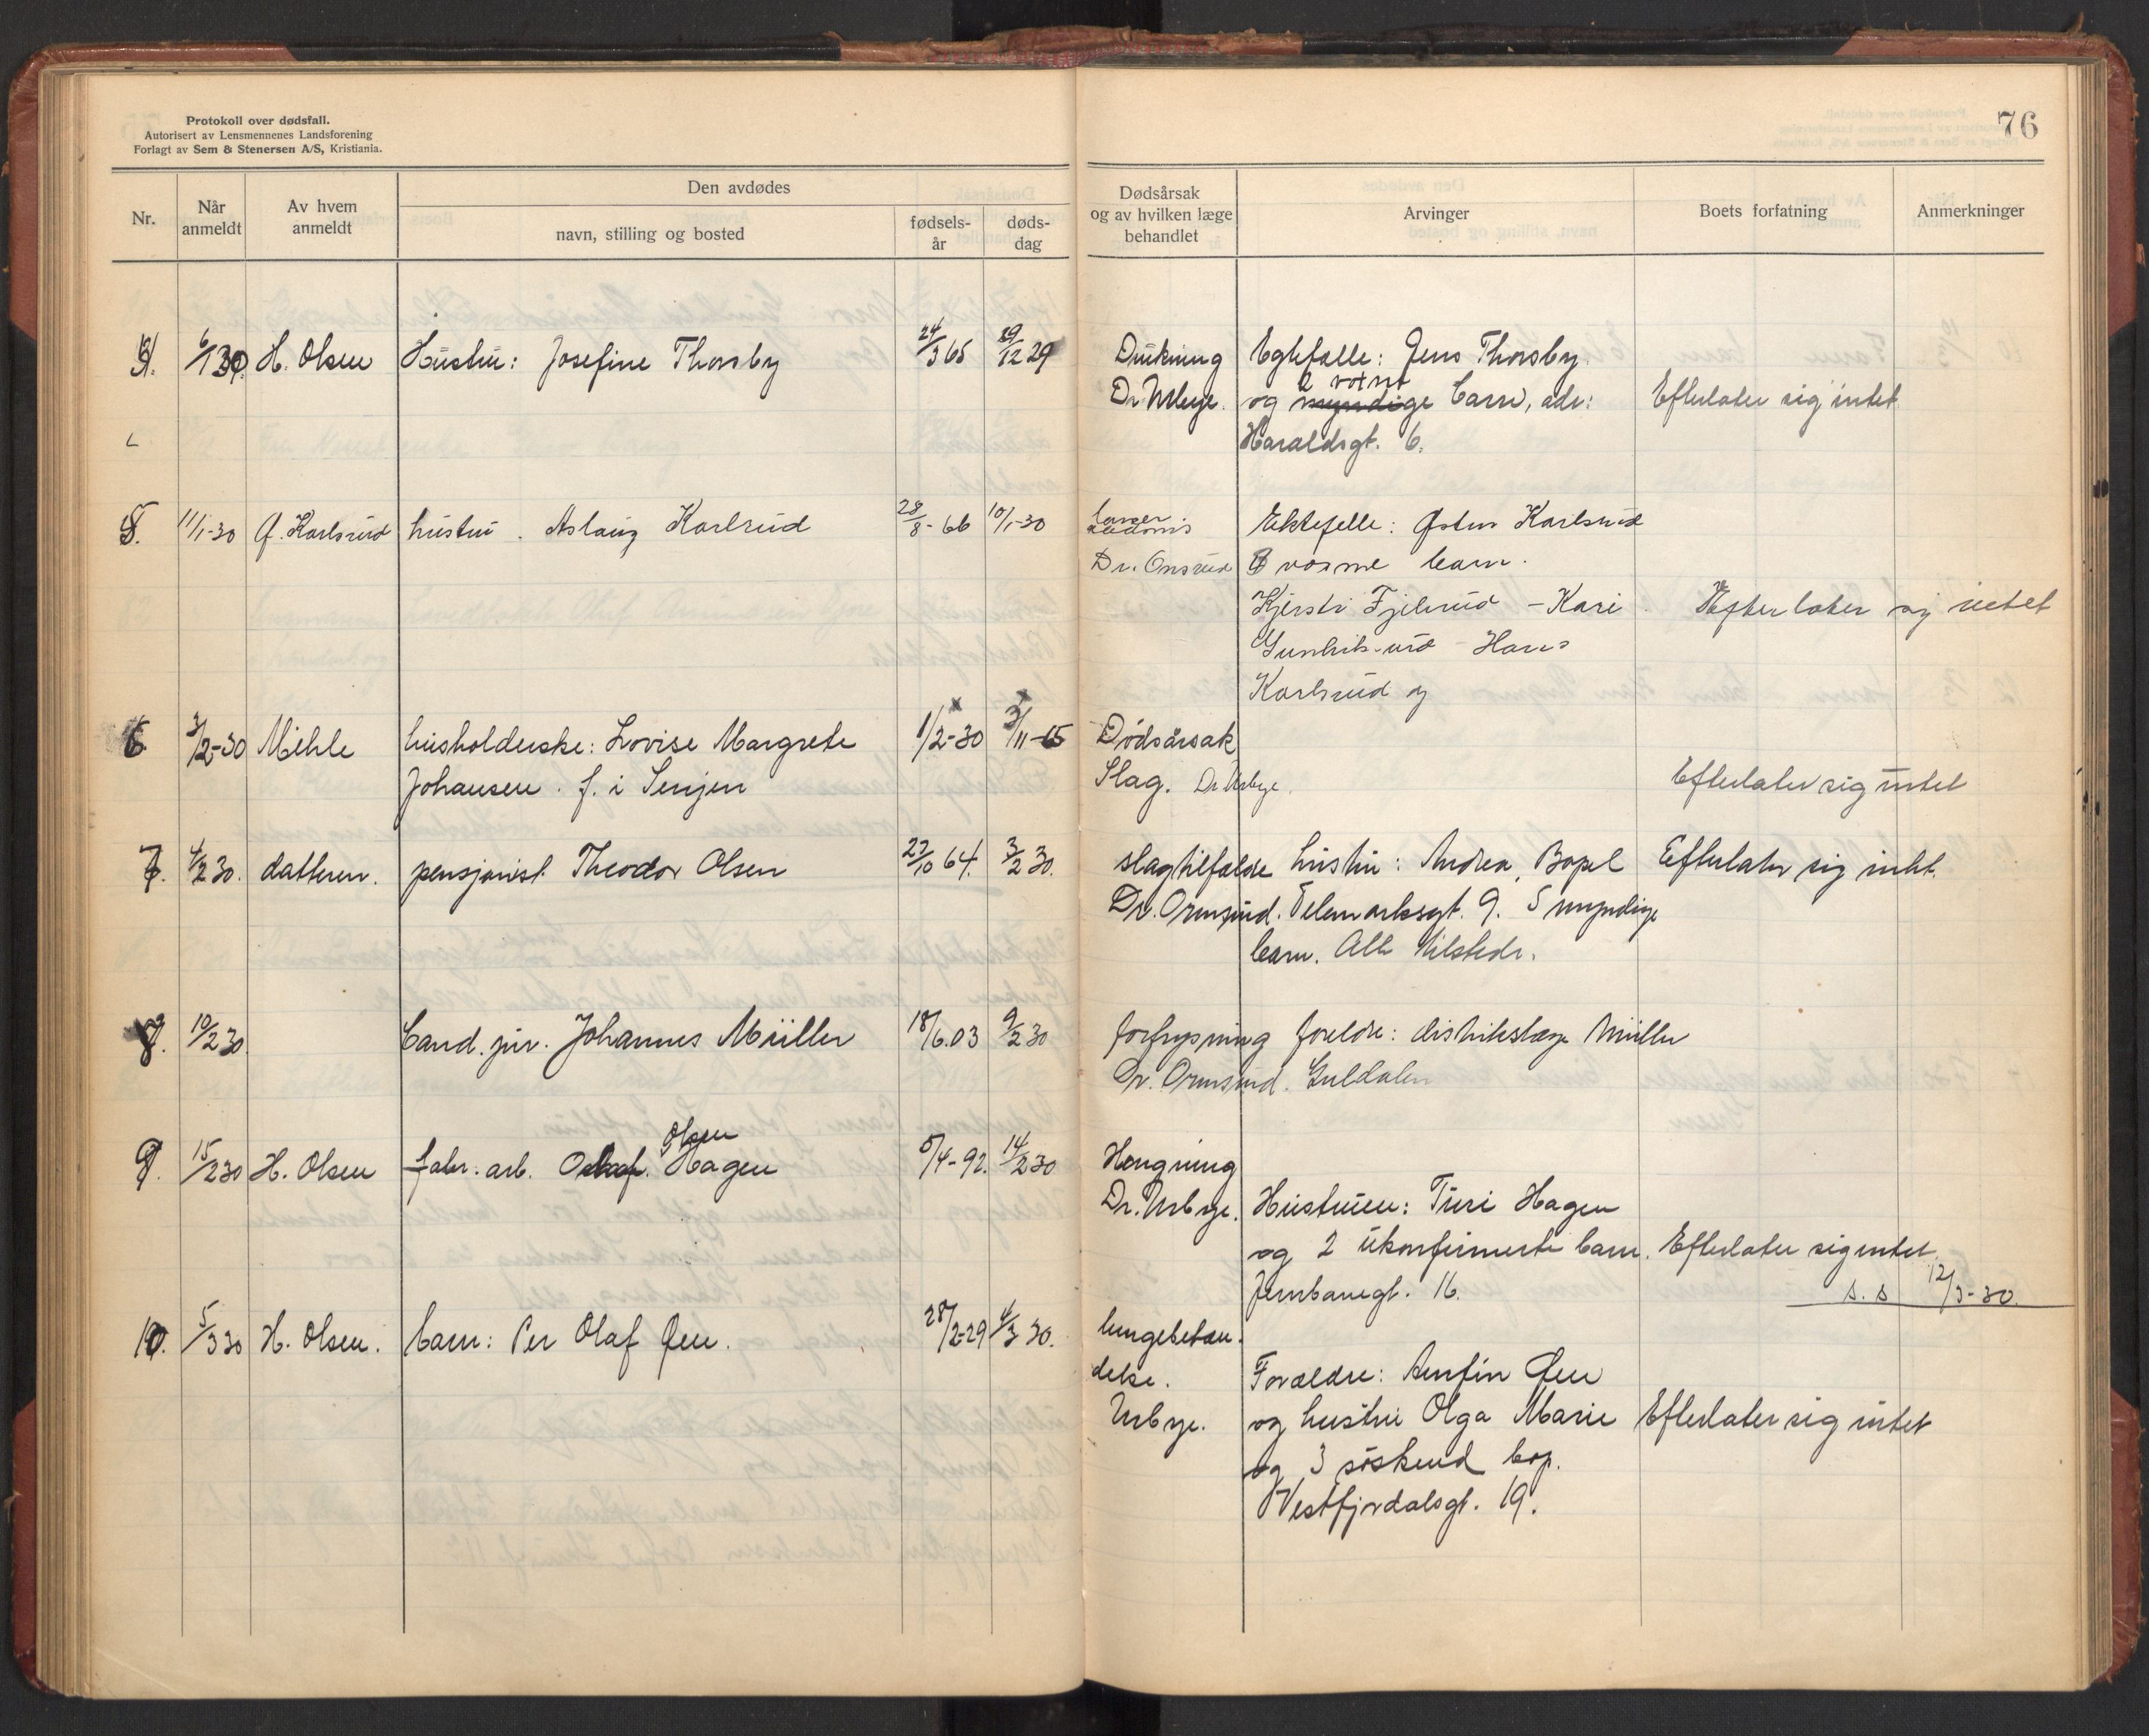 Protokoll over dødsfall.
Autorisert av Lensmennenes Landsforening
Forlagt av Sem & Stenersen A/S, Kristiania.
76
Nr.
Når anmeldt
Av hvem anmeldt
Den avdødes
navn, stilling og bosted
fødselsår
dødsdag
Dødsårsak og av hvilken læge behandlet
Arvinger
Boets forfatning
Anmerkninger
4. 6/1 30. H. Olsen Hustru: Josefine Thorsby 24/3 65 29/12 29 Drukning Egtefælle: Jens Thorsby.
Dr. Urbye. og 2 voxne myndige barn, adr: Efterlater sig intet
Haraldsgt. 6.
5. 11/1-30 Ø. Karlsrud hustru. Aslaug Karlsrud 28/8-66 10/1-30 Ektefelle: Østen Karlsrud
Dr. Onsrud 8 voxne barn.
Kjersti - Kari Efterlater sig intet
Hans
Karlsrud og
6 3/2-30 Mihle husholderske: Lovise Margrete 1/2-30 3/11-65 Dødsårsak
Johansen. f. i Senjen Slag. Dr Urbye. Efterlater sig intet
7. 4/2 30. datteren. pensjonist Theodor Olsen 22/10 64. 3/2 30. slagtilfælde hustru: Andrea, Bopel Efterlater sig intet.
Dr. Ormsrud. Telemarksgt. 9. 5 myndige
barn. Alle tilstede.
8. 10/2 30 Cand. jur. Johannes Müller 18/6.03 9/2 30 forfrysning foreldre: distriktslæge Müller
Dr. Ormsrud. Guldalen
9. 15/2 30 H. Olsen fabr. arb. Olaf. Olsen Hagen 5/4-92. 14/2 30 Hengning
Dr. Urbye. Hustruen: Turi Hagen
og 2 ukonfirmerte barn. Efterlater sig intet.
Jernbanegt. 16. s. s 12/3-30.
10. 5/3 30 H. Olsen. barn: Per Olaf Øen. 28/2-29 4/3 30. lungebetæn-
delse. Forældre: Arnfin Øen
Urbye. og hustru Olga Marie Efterlater sig intet
og 3 søskend bop.
Vestfjordalsgt. 19.